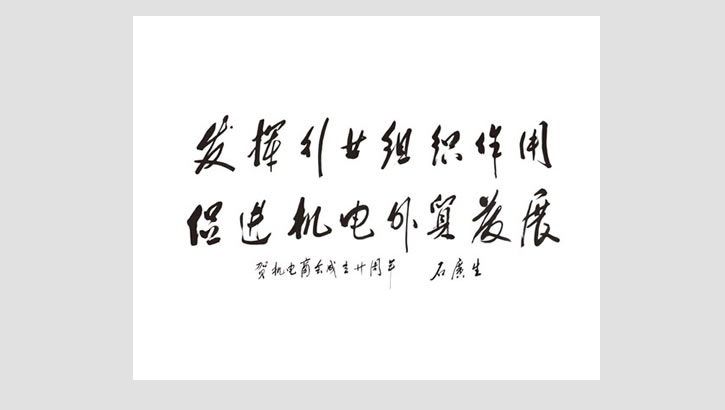 发挥行业组织作用
促进机电外貿發展
贺机电商会成立廿周年 石廣生